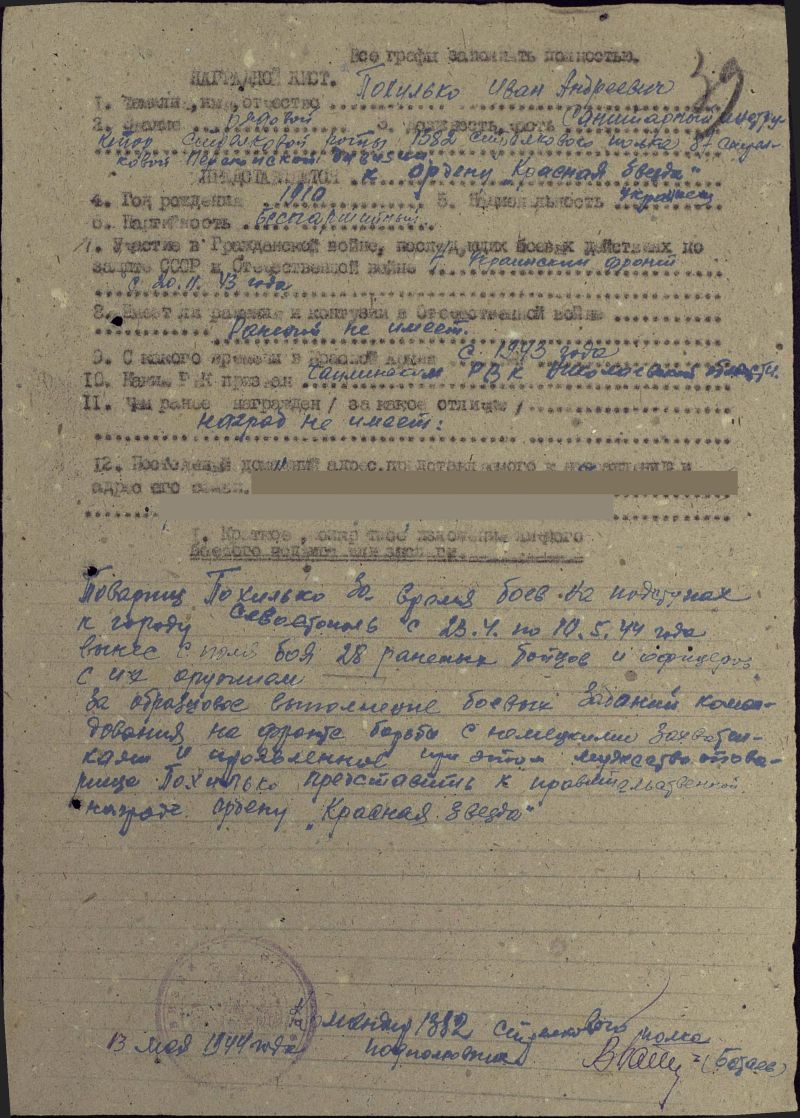 Все графы заполнять полностью.
39
НАГРАДНОЙ ЛИСТ.
1. Фамилия, имя, отчество Похилько Иван Андреевич
2. Звание рядовой 3. Должность, часть Санитарный инстру
ктор Стрелковой роты 1382 Стрелкового полка 87 Стрел-
ковой Перекопской дивизии
ПРЕДСТАВЛЯЕТСЯ к ордену „Красная Звезда"
4. Год рождения 1910 5. Национальность Украинец
6. Партийность Беспартийный
7. Участие в Гражданской войне, последующих боевых действиях по
защите СССР и Отечественной войне Украинский фронт
с 20.11.43 года
8. Имеет ли ранения и контузии в Отечественной войне
Ранений не имеет.
9. С какого времени в Красной Армии С 1943 года
10. Каким РВК призван РВК области.
11. Чем ранее награжден / за какое отличие /
наград не имеет.
12. Постоянный домашний адрес представляемого к награждению и
адрес его семьи.
1. Краткое, конкретное изложение личного
боевого подвига или заслуги.
Товарищ Похилько за время боев на подступах
к городу Севастополь с 23.4. по 10.5.44 года
вынес с поля боя 28 раненых бойцов и офицеров
с их оружием
За образцовое выполнение боевых заданий коман-
дования на фронте борьбы с немецкими захватчи-
ками и проявленное при этом мужество това-
рища Похилько представить к правительственной
награде ордену „Красная Звезда"
Командир 1382 Стрелкового полка
13 мая 1944 года подполковник (Батаев)